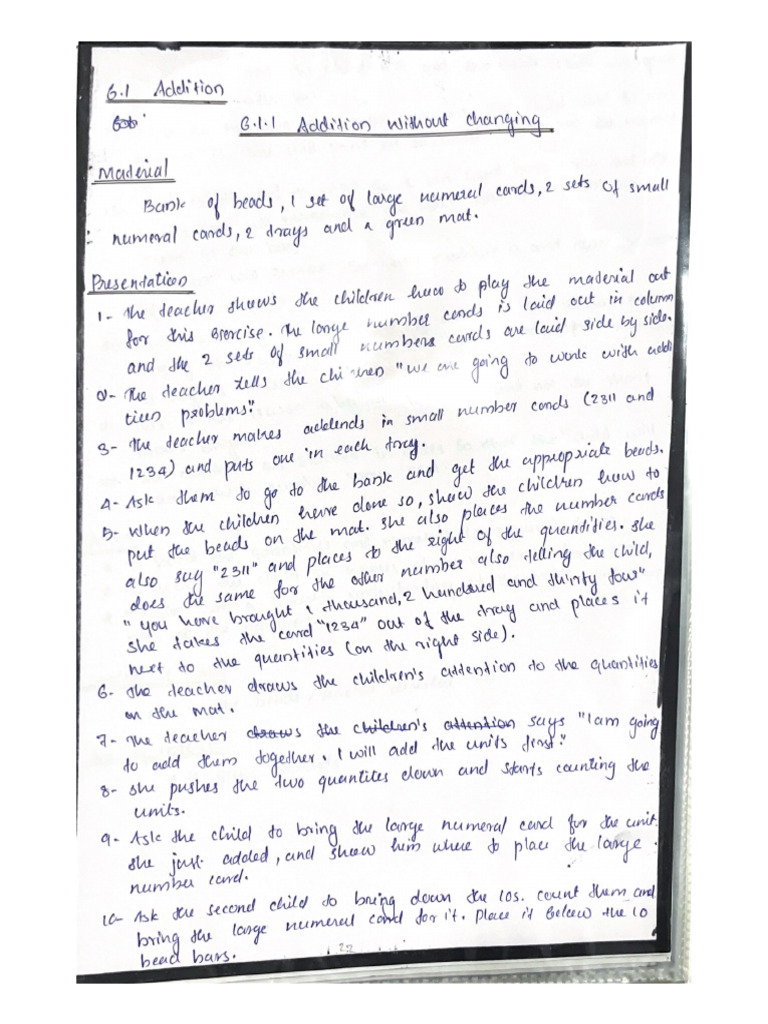 6.1 Addition
6.1.1 Addition without changing
Material
Bank of beads, 1 set of large numeral cards, 2 sets of small
numeral cards, 2 trays and a green mat.
Presentation
1- The teacher shows the children how to play the material out
for this Exercise. The large number cards is laid out in column
and the 2 sets of small numbers cards are laid side by side.
2- The teacher tells the children "we are going to work with addi
tion problems".
3- The teacher makes addends in small number cards (2311 and
1234) and puts one in each tray.
4- Ask them to go to the bank and get the appropriate beads.
5- When the children have done so, show the children how to
put the beads on the mat. She also places the number cards
also say "2311" and places to the right of the quantities. She
does the same for the other number also telling the child,
" you have brought 1 thousand, 2 hundred and thirty four"
she takes the card "1234" out of the tray and places it
next to the quantities (on the right side).
6- The teacher draws the children's attention to the quantities
on the mat.
7- The teacher draws the children's attention says "I am going
to add them together. I will add the units first."
8- She pushes the two quantites down and starts counting the
units.
9- Ask the child to bring the large numeral card for the unit
she just added, and show him where to place the large
number card.
10- Ask the second child to bring down the 10s. count them and
bring the large numeral card for it. Place it below the 10
bead bars.
22